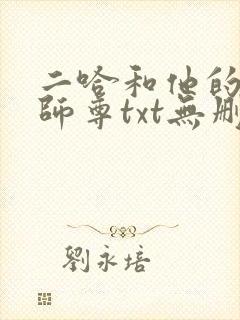 二哈和他的
師尊txt無刪
劉永培